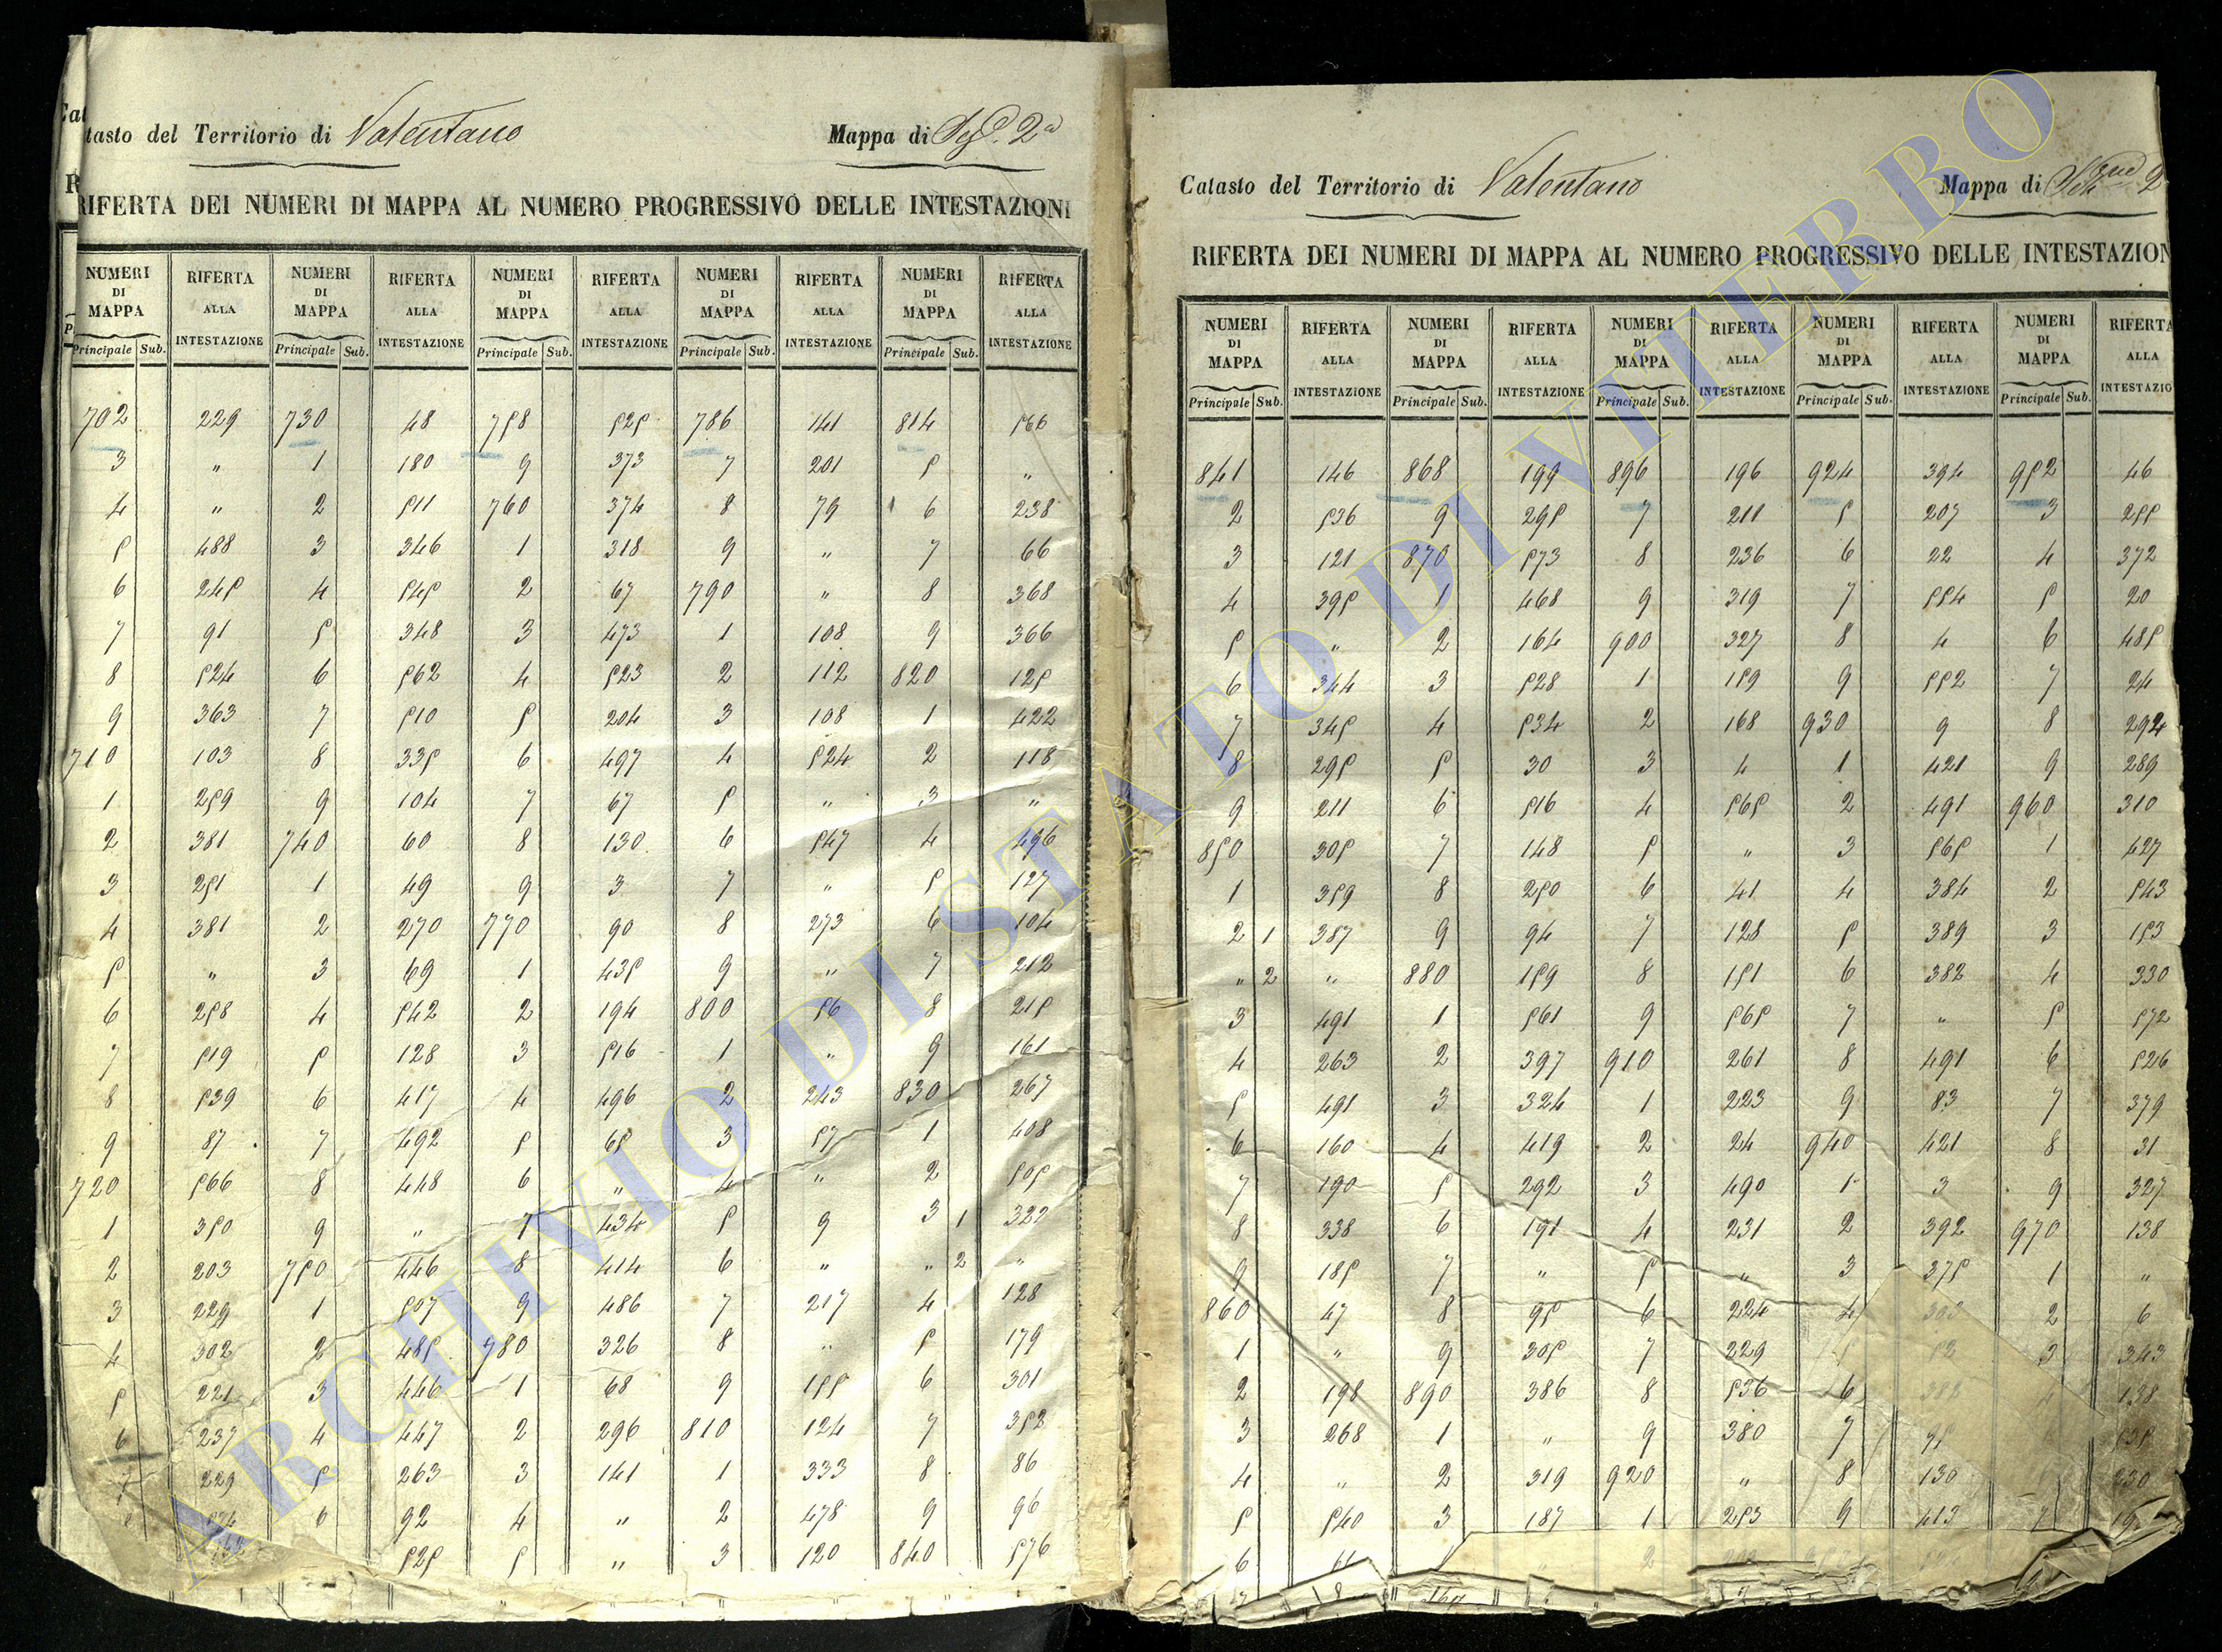 Catasto del Territorio di Valentano Mappa di Sez. 2a
RIFERTA DEI NUMERI DI MAPPA AL NUMERO PROGRESSIVO DELLE INTESTAZIONI
NUMERI DI MAPPA RIFERTA ALLA INTESTAZIONE NUMERI DI MAPPA RIFERTA ALLA INTESTAZIONE NUMERI DI MAPPA RIFERTA ALLA INTESTAZIONE NUMERI DI MAPPA RIFERTA ALLA INTESTAZIONE NUMERI DI MAPPA RIFERTA ALLA INTESTAZIONE
Principale Sub. Principale Sub. Principale Sub. Principale Sub. Principale Sub.
702 229 730 48 758 525 786 141 814 566
3 " 1 180 9 373 7 201 5 "
4 " 2 511 760 374 8 79 6 238
5 488 3 346 1 318 9 " 7 66
6 245 4 545 2 67 790 " 8 368
7 91 5 348 3 473 1 108 9 366
8 524 6 562 4 523 2 112 820 125
9 363 7 510 5 204 3 108 1 422
710 103 8 335 6 497 4 524 2 118
1 259 9 104 7 67 5 " 3 "
2 381 740 60 8 130 6 547 4 496
3 251 1 49 9 3 7 " 5 127
4 381 2 270 770 90 8 273 6 104
5 " 3 69 1 435 9 " 7 212
6 258 4 542 2 194 800 56 8 215
7 519 5 128 3 516 1 " 9 161
8 539 6 417 4 496 2 243 830 267
9 87 7 492 5 65 3 57 1 408
720 566 8 448 6 " 4 " 2 505
1 350 9 " 7 434 5 9 3 1 322
2 203 750 446 8 414 6 " " 2 "
3 229 1 507 9 486 7 217 4 128
4 302 2 485 780 326 8 " 5 179
5 221 3 446 1 68 9 155 6 301
6 237 4 447 2 296 810 124 7 352
7 229 5 263 3 141 1 333 8 86
6 92 4 " 2 478 9 96
525 5 " 3 120 840 576
Catasto del Territorio di Valentano Mappa di
RIFERTA DEI NUMERI DI MAPPA AL NUMERO PROGRESSIVO DELLE INTESTAZION
NUMERI DI MAPPA RIFERTA ALLA INTESTAZIONE NUMERI DI MAPPA RIFERTA ALLA INTESTAZIONE NUMERI DI MAPPA RIFERTA ALLA INTESTAZIONE NUMERI DI MAPPA RIFERTA ALLA INTESTAZIONE NUMERI DI MAPPA RIFERTA ALLA INTESTAZIO
Principale Sub. Principale Sub. Principale Sub. Principale Sub. Principale Sub.
841 146 868 199 896 196 924 394 952 46
2 536 9 295 7 211 5 207 3 255
3 121 870 573 8 236 6 22 4 372
4 395 1 468 9 319 7 554 5 20
5 " 2 164 900 327 8 4 6 485
6 344 3 528 1 159 9 552 7 24
7 345 4 534 2 168 930 9 8 294
8 295 5 30 3 4 1 421 9 289
9 211 6 516 4 565 2 491 960 310
850 305 7 148 5 " 3 565 1 427
1 359 8 250 6 41 4 384 2 543
2 1 387 9 94 7 128 5 389 3 153
" 2 " 880 159 8 151 6 382 4 330
3 491 1 561 9 565 7 " 5 572
4 263 2 397 910 261 8 491 6 526
5 491 3 324 1 223 9 83 7 379
6 160 4 419 2 24 940 421 8 31
7 190 5 292 3 490 1 3 9 327
8 338 6 191 4 231 2 392 970 138
9 185 7 " 5 " 3 375 1 "
860 47 8 95 6 224 4 303 2 6
1 " 9 305 7 229 3 343
2 198 890 386 8 536 6 138
3 268 1 " 9 380 7
4 " 2 319 920 " 8 130 230
5 540 3 187 1 253 9 413 7
6 2
ARCHIVIO DI STATO DI VITERBO